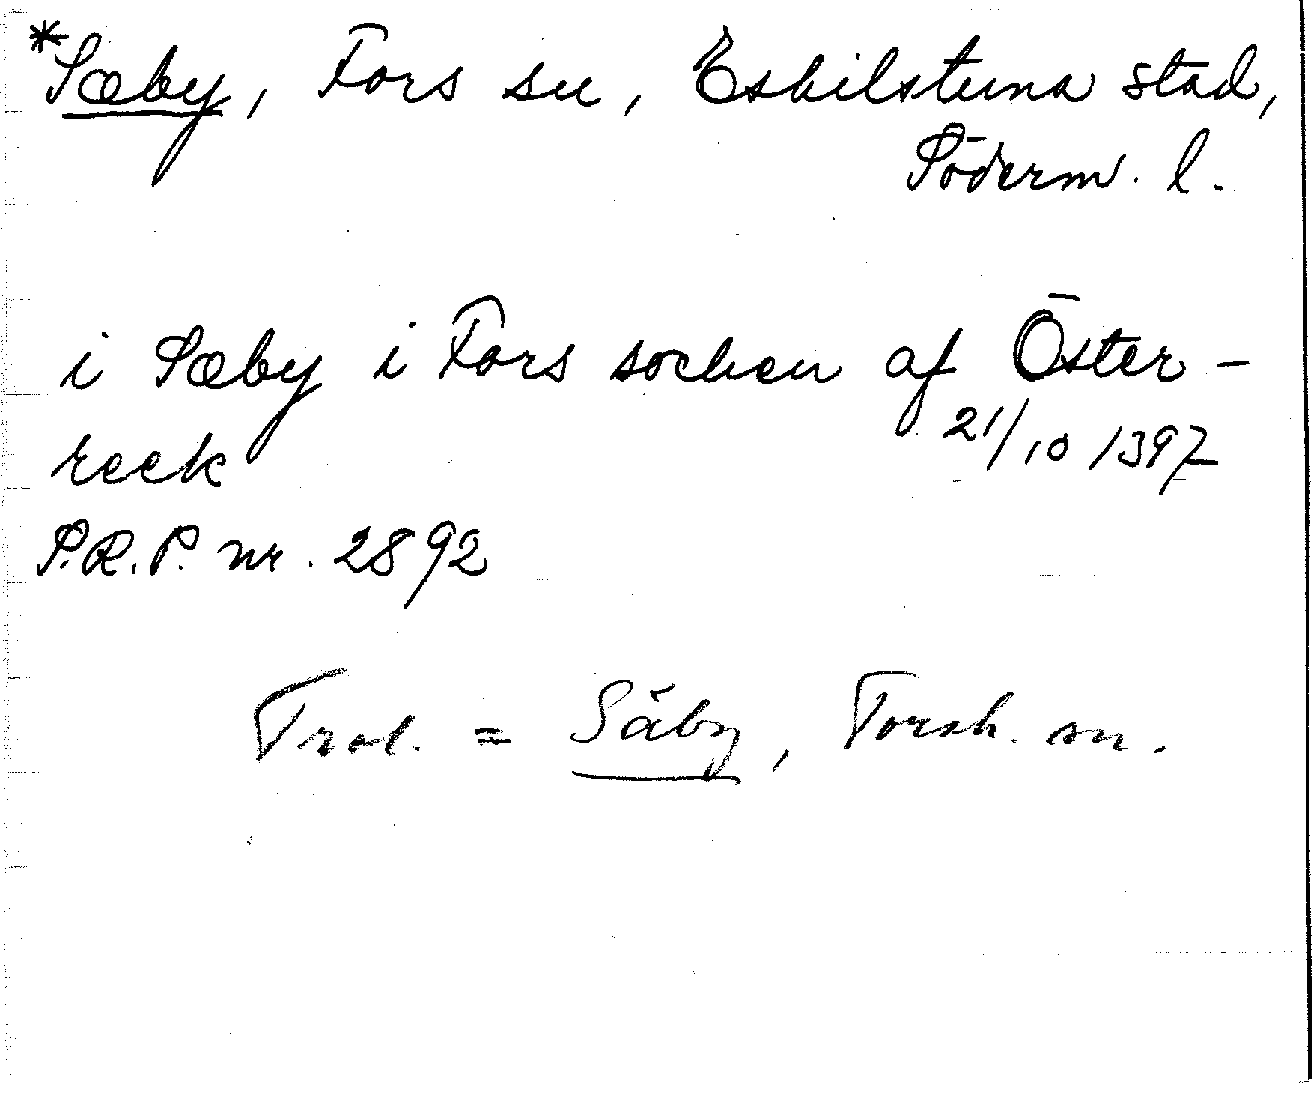 *Sæby, Fors sn, Eskilstuna stad,
Söderm. l.
i Sæby i Fors sochen af Öster-
reek
21/10 1397
S.R.P. nr. 2892
Trol. = Säby, Torsh. sn.